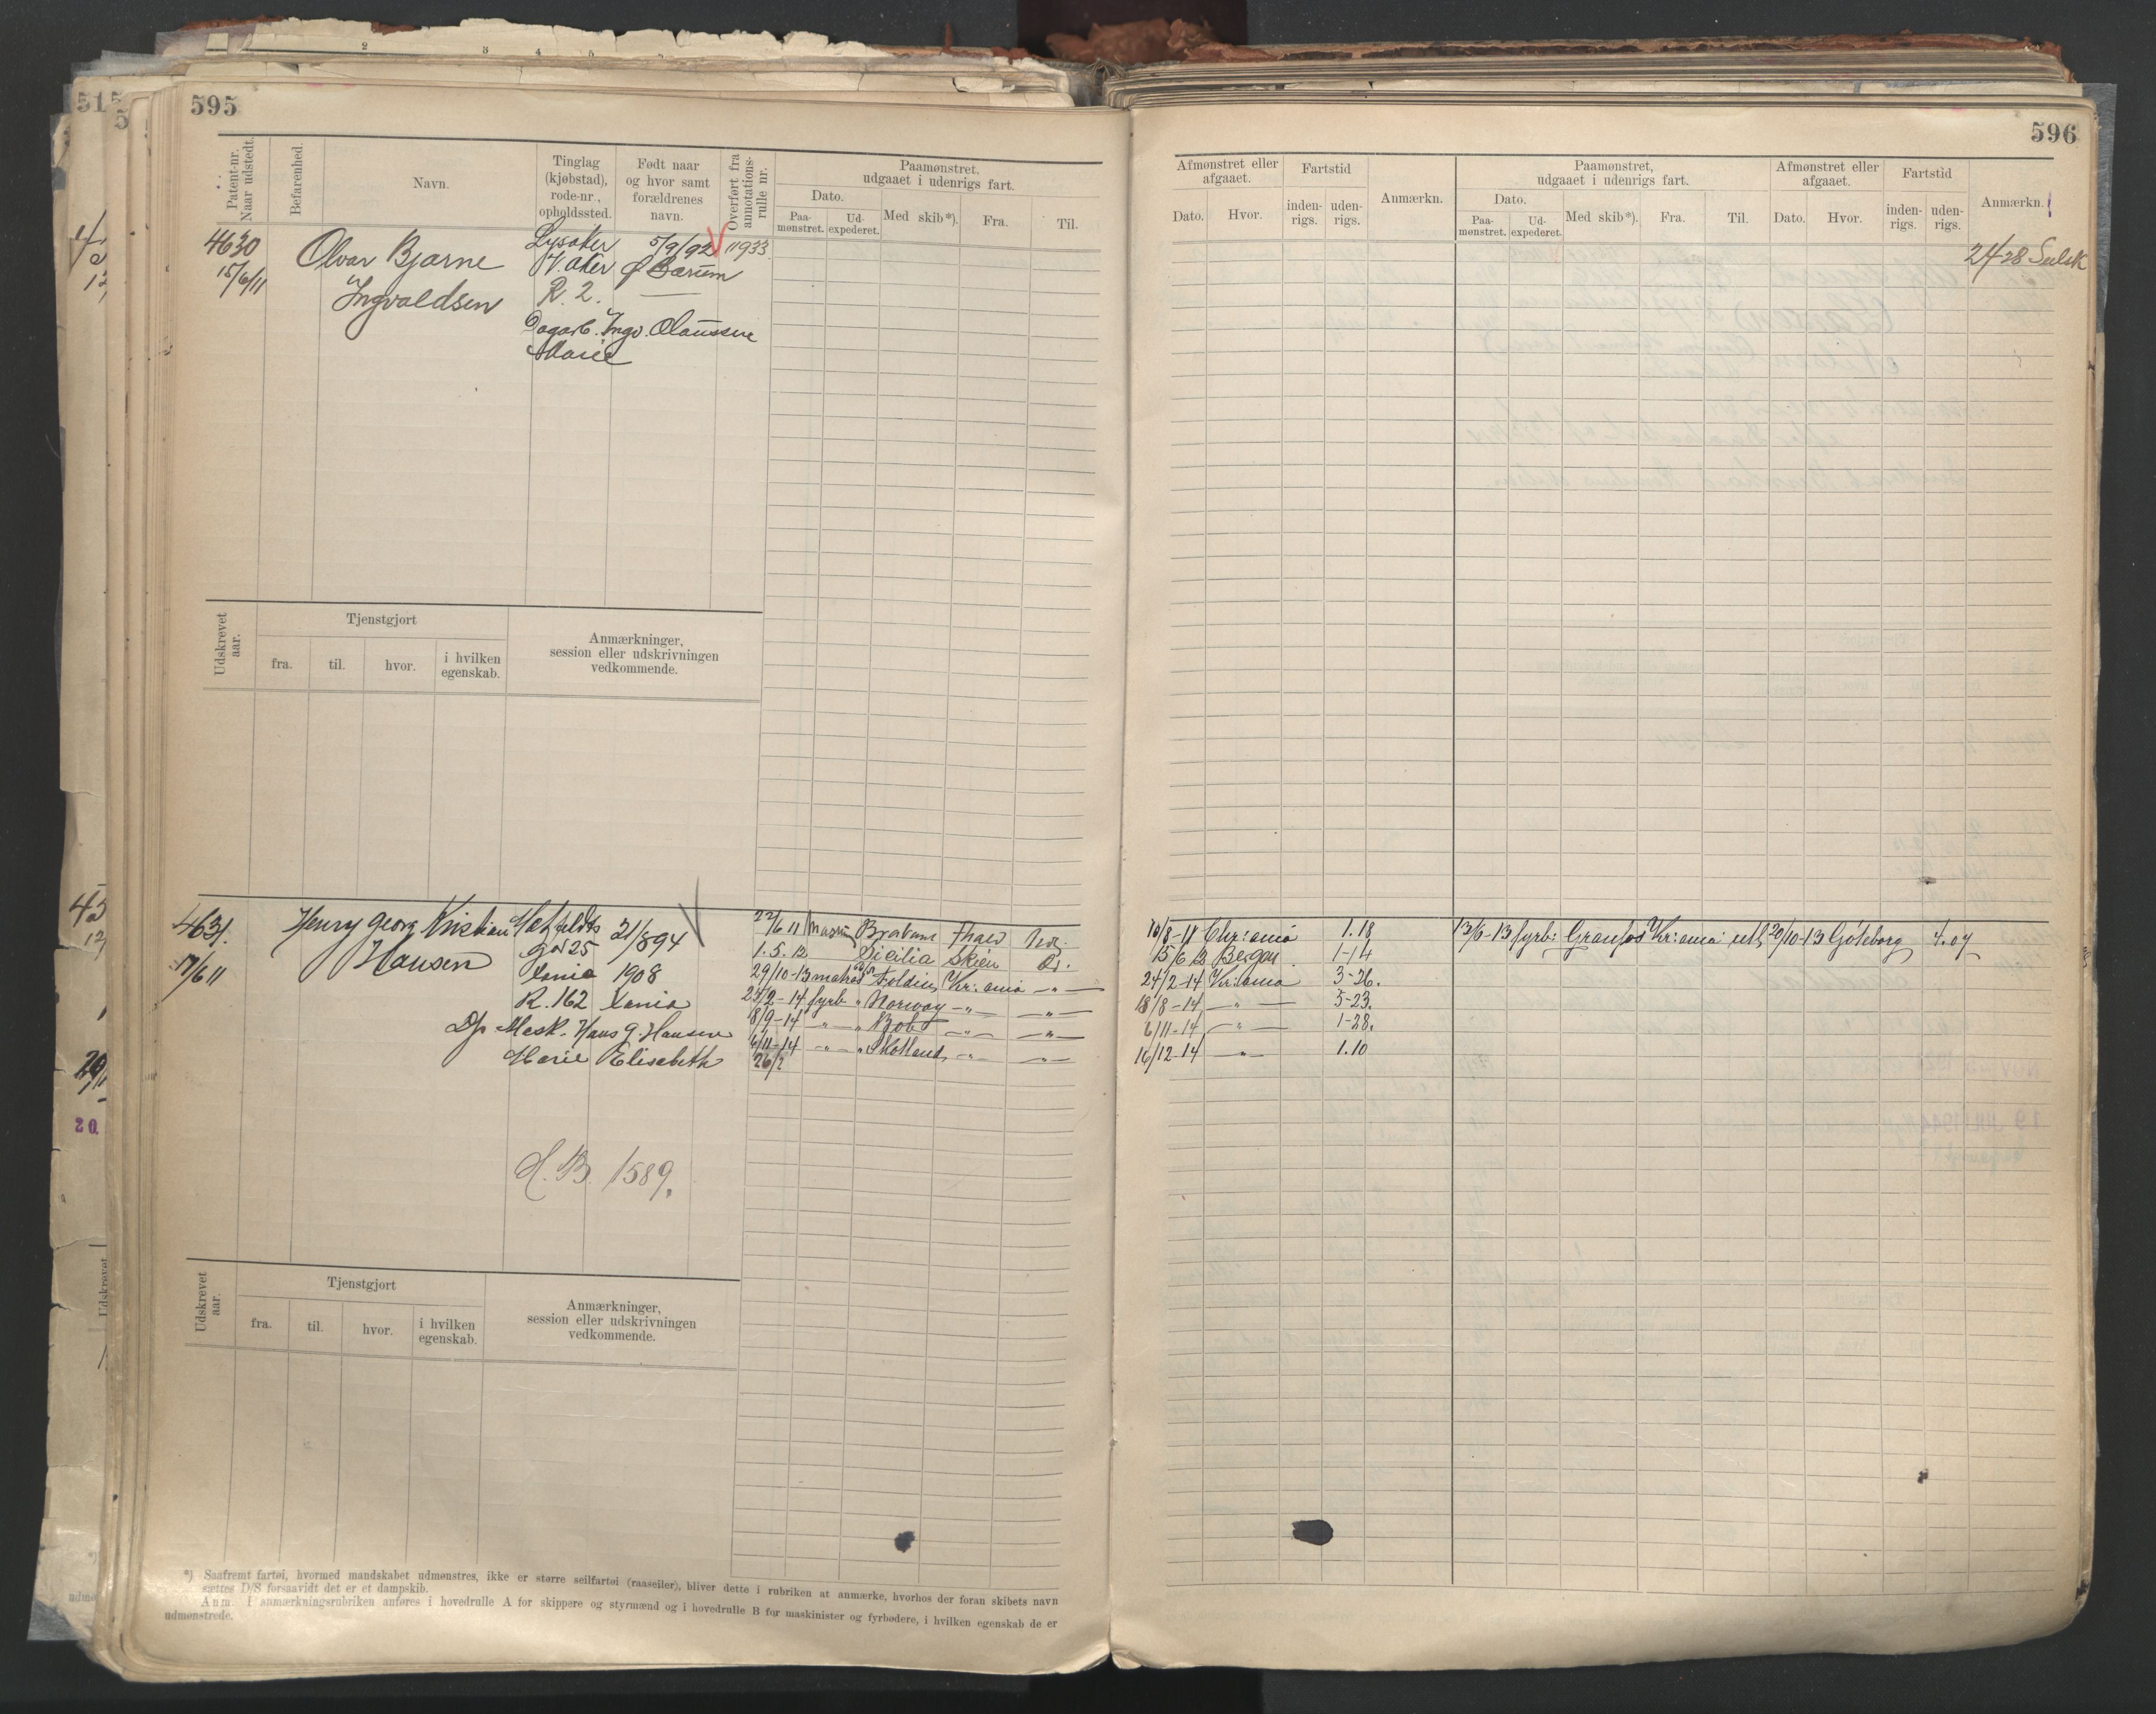 595
Patent-nr. Naar udstedt.
Befarenhed.
Navn.
Tinglag (kjøbstad), rode-nr., opholdssted.
Født naar og hvor samt forældrenes navn.
Overført fra annotations-rulle nr.
Paamønstret, udgaaet i udenrigs fart.
Dato.
Paa-mønstret.
Ud-expederet.
Med skib*).
Fra.
Til.
4630
15/6 11
Olvar Bjarne
Ingvaldsen
Lysaker
V. Aker
R. 2.
5/9/92
Ø Bærum
11933
Dagarb. Ingv. Olaussen
Marie
Udskrevet aar.
Tjenstgjort
fra.
til.
hvor.
i hvilken egenskab.
Anmærkninger, session eller udskrivningen vedkommende.
4631.
17/6 11
Henry Georg Kristian
Hansen
gd 25
Xania
R. 162
21/8 94
1908
Xania
Mask. Hans G. Hansen
Marie Elisabeth
H. B. 1589.
22/6 11 Brabant
1. 5. 12 Sicilia Skien
29/10-13 matros Foldin, Kr:ania -"-
24/2-14 fyrb " Norway -"- -"-
8/9-14 -"- " Bob -"- -"-
6/11-14 -"- " Skotland, -"- -"-
26/2
Udskrevet aar.
Tjenstgjort
fra.
til.
hvor.
i hvilken egenskab.
Anmærkninger, session eller udskrivningen vedkommende.
*) Saafremt fartøi, hvormed mandskabet udmønstres, ikke er større seilfartøi (raaseiler), bliver dette i rubriken at anmærke, hvorhos der foran skibets navn
sættes D/S forsaavidt det er et dampskib.
Anm. I anmærkningsrubriken anføres i hovedrulle A for skippere og styrmænd og i hovedrulle B for maskinister og fyrbødere, i hvilken egenskab de er
udmønstrede.
596
Afmønstret eller afgaaet.
Dato.
Hvor.
Fartstid
inden-rigs.
uden-rigs.
Anmærkn.
Paamønstret, udgaaet i udenrigs fart.
Dato.
Paa-mønstret.
Ud-expederet.
Med skib*).
Fra.
Til.
Afmønstret eller afgaaet.
Dato.
Hvor.
Fartstid
inden-rigs.
uden-rigs.
Anmærkn.
24/28
10/8-11 Chr:ania 1.18
13/6-13 fyrb: Granfos Kr:ania utl, 20/10-13 Göteborg 4.07
15/6 13 Bergen 1-14
24/2-14 Kr:ania 3-26.
18/8-14 -"- 5-23.
6/11-14 -"- 1-28.
16/12-14 -"- 1.10